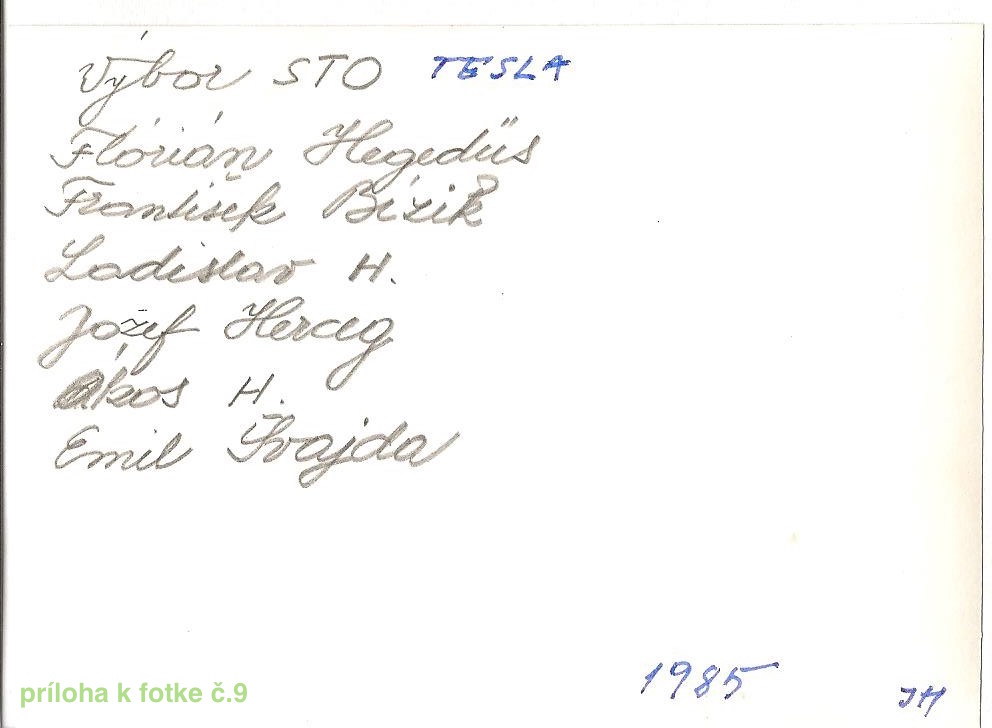 Výbor STO TESLA
Flórián Hegedüs
František Bízik
Ladislav H.
Jožef Herceg
Ákos H.
Emil Švajda
1985
JH
príloha k fotke č.9